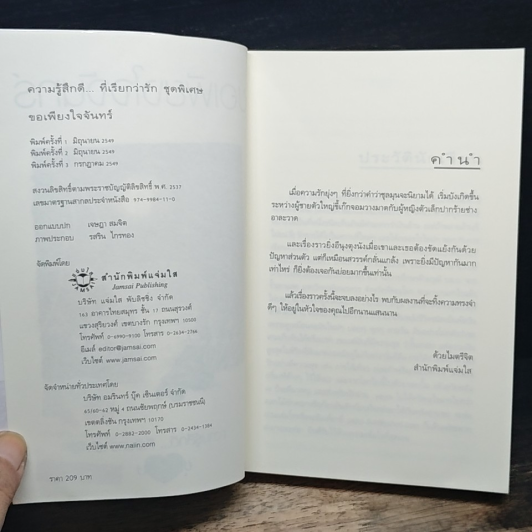 ความรู้สึกดี... ที่เรียกว่ารัก ชุดพิเศษ
ขอเพียงใจจันทร์
พิมพ์ครั้งที่ 1 มิถุนายน 2549
พิมพ์ครั้งที่ 2 มิถุนายน 2549
พิมพ์ครั้งที่ 3 กรกฎาคม 2549
สงวนลิขสิทธิ์ตามพระราชบัญญัติลิขสิทธิ์ พ.ศ. 2537
เลขมาตรฐานสากลประจำหนังสือ 974-9984-11-0
ออกแบบปก เจษฎา สมจิต
ภาพประกอบ รสริน ไกรทอง
จัดพิมพ์โดย
สำนักพิมพ์แจ่มใส
Jamsai Publishing
บริษัท แจ่มใส พับลิชชิง จำกัด
163 อาคารไทยสมุทร ชั้น 17 ถนนสุรวงศ์
แขวงสุริยวงศ์ เขตบางรัก กรุงเทพฯ 10500
โทรศัพท์ 0-6990-9100 โทรสาร 0-2634-2766
อีเมล์ editor@jamsai.com
เว็บไซต์ www.jamsai.com
จัดจำหน่ายทั่วประเทศโดย
บริษัท อมรินทร์ บุ๊ค เซ็นเตอร์ จำกัด
65/60-62 หมู่ 4 ถนนชัยพฤกษ์ (บรมราชชนนี)
เขตตลิ่งชัน กรุงเทพฯ 10170
โทรศัพท์ 0-2882-2000 โทรสาร 0-2434-1384
เว็บไซต์ www.naiin.com
ราคา 209 บาท
คำนำ
เมื่อความรักยุ่งๆ ที่ยิ่งกว่าคำว่าชุลมุนจะนิยามได้ เริ่มบังเกิดขึ้น
ระหว่างผู้ชายตัวใหญ่ขี้เก๊กจอมวางมาดกับผู้หญิงตัวเล็กปากร้ายช่าง
อาละวาด
และเรื่องราวยิ่งอีนุงตุงนังเมื่อเขาและเธอต้องขัดแย้งกันด้วย
ปัญหาส่วนตัว แต่ก็เหมือนสวรรค์กลั่นแกล้ง เพราะยิ่งมีปัญหากันมาก
เท่าไหร่ ก็ยิ่งต้องเจอกันบ่อยมากขึ้นเท่านั้น
แล้วเรื่องราวครั้งนี้จะจบลงอย่างไร พบกับผลงานที่จะทิ้งความทรงจำ
ดีๆ ให้อยู่ในหัวใจของคุณไปอีกนานแสนนาน
ด้วยไมตรีจิต
สำนักพิมพ์แจ่มใส